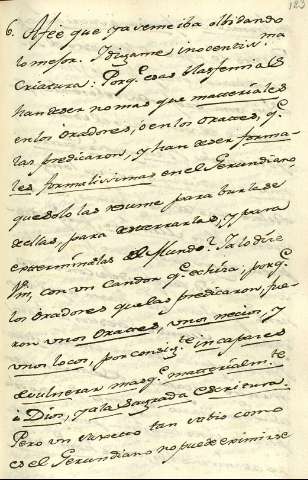 123
6. A fee que ya veme iba olbidando
lo mejor. Digame inocentis.ma
Criatura: Porq.e esas blasfemias
han de ser no mas que materiales
en los Oradores, ò en los Oraces, q.e
las predicaron, y han de ser forma-
les formalissimas en el Gerundiano,
que solo las resume para burlarse
de ellas, para desterrarlas, y para
exterminarlas el Mundo? Yo lo dirè
Vm, con un candor q.e echiza, porq.e
los Oradores que las predicaron, fue-
ron unos Oraces, unos necios, y
unos locos, por consig.te incapaces
de vulnerar mas q.e material m.te
à Dios, y à la Sagrada Escritura.
Pero un sugeto tan sabio como
es el Gerundiano no puede eximirse